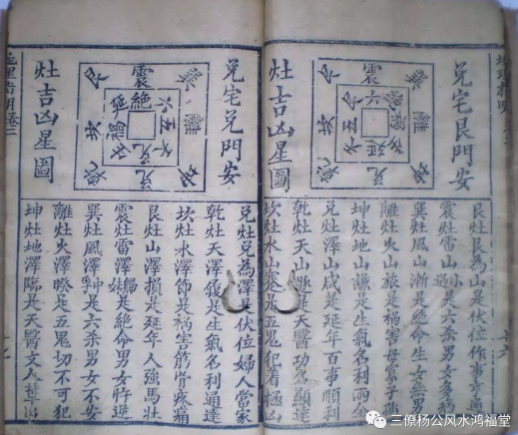 兌宅艮門安
灶吉凶星圖
震
艮灶艮為山是伏位作事亨通
震灶雷山小過是六杀男女多
巽灶風山漸是絕命生女無男
離灶火山旅是禍害母
坤灶地山謙是生氣名利兩全
兌灶澤山咸是延年百事順利
乾灶天山遯是天醫功名顯達
坎灶水山蹇是五鬼犯着極凶
兌宅兌門安
灶吉凶星圖
震
絕
兌灶兌為澤是伏位婦人當家
乾灶天澤履是生氣名利通達
坎灶水澤節是禍生筋骨疼痛
艮灶山澤損是延年人強馬壯
震灶雷澤歸妹是絕命男女悖逆
巽灶風澤中孚是六杀男女不安
離灶火澤睽是五鬼切不可犯
坤灶地澤臨是天醫文人
地理指明卷二
三僚杨公风水鸿福堂